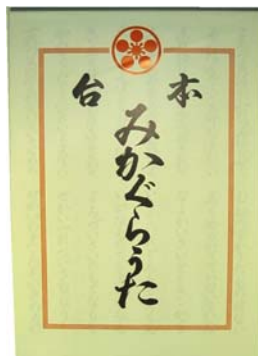 台本
みかぐらうた